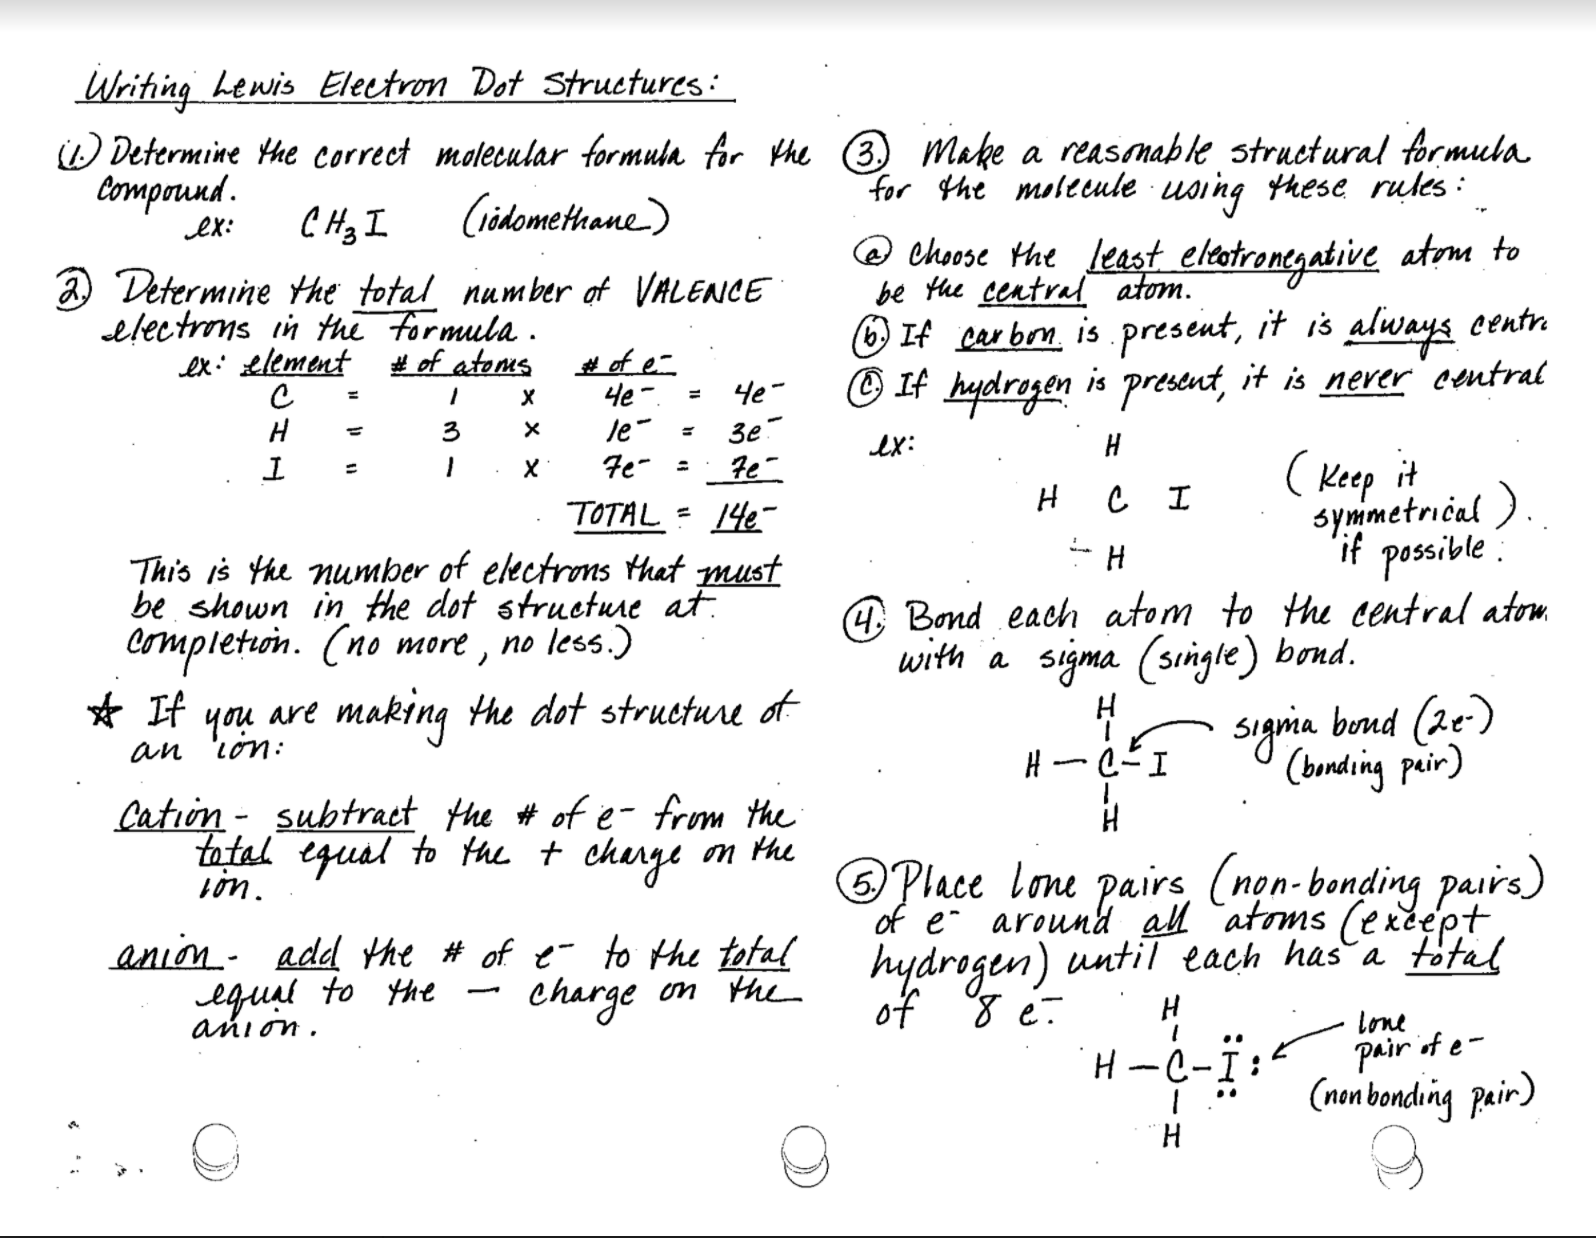 Writing Lewis Electron Dot Structures:
1. Determine the correct molecular formula for the
compound.
ex: CH₃I (iodomethane)
2. Determine the total number of VALENCE
electrons in the formula.
ex: element # of atoms # of e-
C = 1 x 4e- = 4e-
H = 3 x 1e- = 3e-
I = 1 x 7e- = 7e-
TOTAL = 14e-
This is the number of electrons that must
be shown in the dot structure at
completion. (no more, no less.)
☆ If you are making the dot structure of
an ion:
Cation - subtract the # of e- from the
total equal to the + charge on the
ion.
anion - add the # of e- to the total
equal to the - charge on the
anion.
3. Make a reasonable structural formula
for the molecule using these rules:
a Choose the least electronegative atom to
be the central atom.
b. If carbon is present, it is always centra
c. If hydrogen is present, it is never central
ex: H
H C I
H
(Keep it
symmetrical).
if possible.
4. Bond each atom to the central atom
with a sigma (single) bond.
H
H - C - I
H
sigma bond (2e-)
(bonding pair)
5. Place lone pairs (non-bonding pairs)
of e- around all atoms (except
hydrogen) until each has a total
of 8 e-.
H
H - C - I:
H
lone
pair of e-
(nonbonding pair)